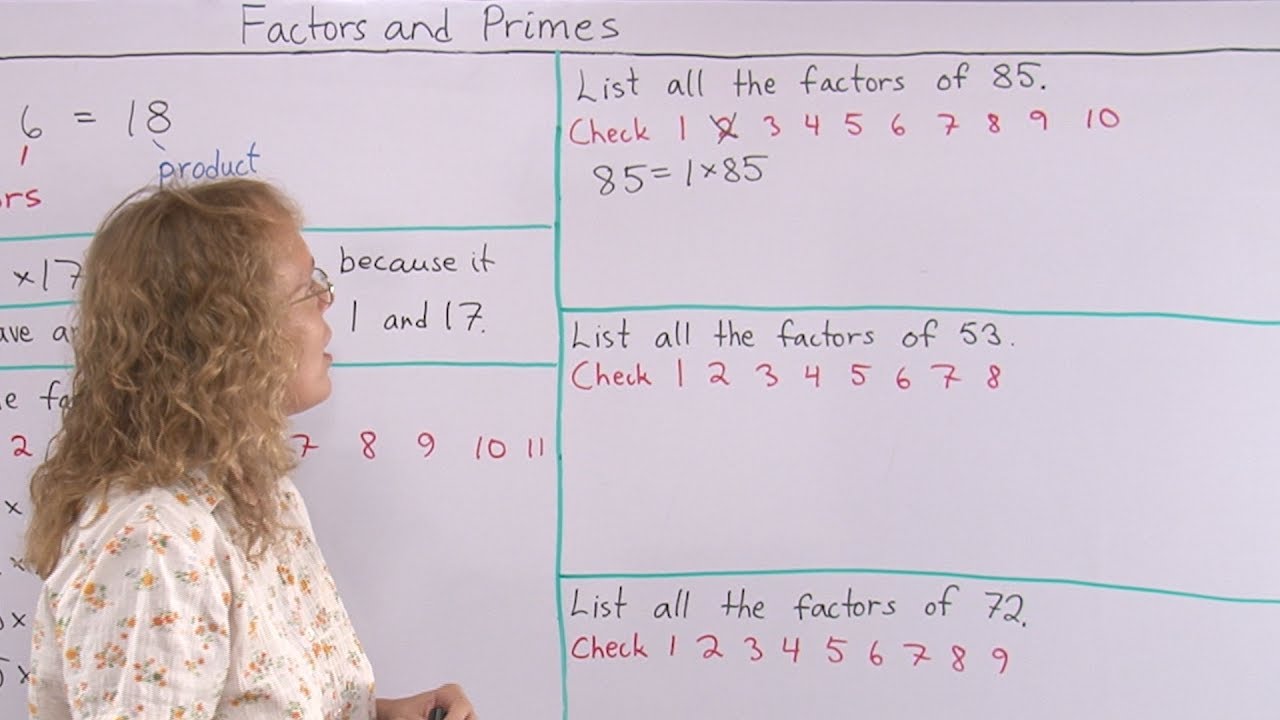 Factors and Primes
6 = 18
product
× 17 because it
1 and 17.
2 7 8 9 10 11
×
×
×
×
List all the factors of 85.
Check 1 2 3 4 5 6 7 8 9 10
85 = 1 × 85
List all the factors of 53.
Check 1 2 3 4 5 6 7 8
List all the factors of 72.
Check 1 2 3 4 5 6 7 8 9